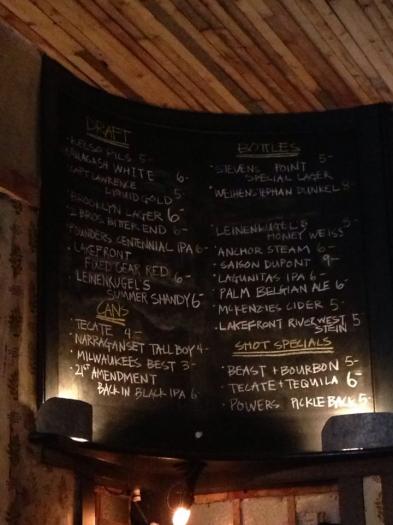 DRAFT
• KELSO PILS 5-
ALLAGASH WHITE 6-
CAPT LAWRENCE
LIQUID GOLD 5
• BROOKLYN LAGER 6-
• 2 BROS BITTER END 6-
• FOUNDERS CENTENNIAL IPA 6-
• LAKEFRONT
FIXED GEAR RED 6-
• LEINENKUGEL'S
SUMMER SHANDY 6-
CANS
• TECATE 4-
• NARRAGANSET TALL BOY 4-
• MILWAUKEE'S BEST 3-
• 21ST AMENDMENT
BACK IN BLACK IPA 6
BOTTLES
• STEVENS POINT 5-
SPECIAL LAGER
• WEIHENSTEPHAN DUNKEL
• LEINENKUGEL'S 5-
HONEY WEISS
• ANCHOR STEAM 6-
• SAISON DUPONT 9-
• LAGUNITAS IPA 6-
• PALM BELGIAN ALE 6-
• MCKENZIES CIDER 5-
• LAKEFRONT RIVERWEST
STEIN 5
SHOT SPECIALS
• BEAST + BOURBON 5-
• TECATE + TEQUILA 6-
• POWERS PICKLE BACK 5-